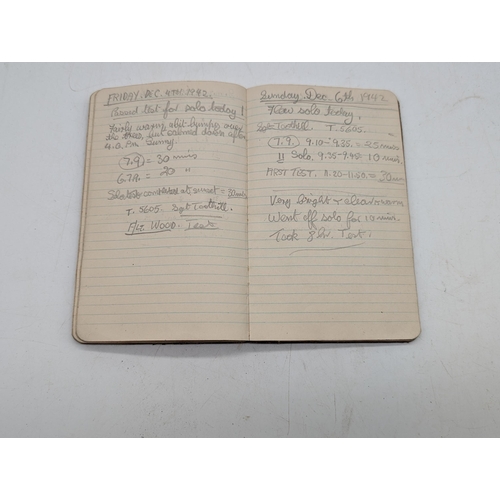 FRIDAY. DEC. 4TH. 1942.
Passed test for solo today!
Fairly warm, abit bumpy over
the trees, but calmed down after
4.0. P.m. Sunny.
(7.9) = 30 mins
6.7.9. = 20 "
completed at sunset = 30 mins
T. 5605. Sgt Toothill.
F/LT. WOOD. Test
Sunday. Dec. 6th 1942
Flew solo today.
Sgt Toothill. T. 5605.
(7.9.) 9.10-9.35. = 25 mins
" Solo, 9.35-9.45 10 min
FIRST TEST. 11.20-11.50. = 30 min
Very bright & clear warm
Went off solo for 10 mins.
Took 8 hr. Test.